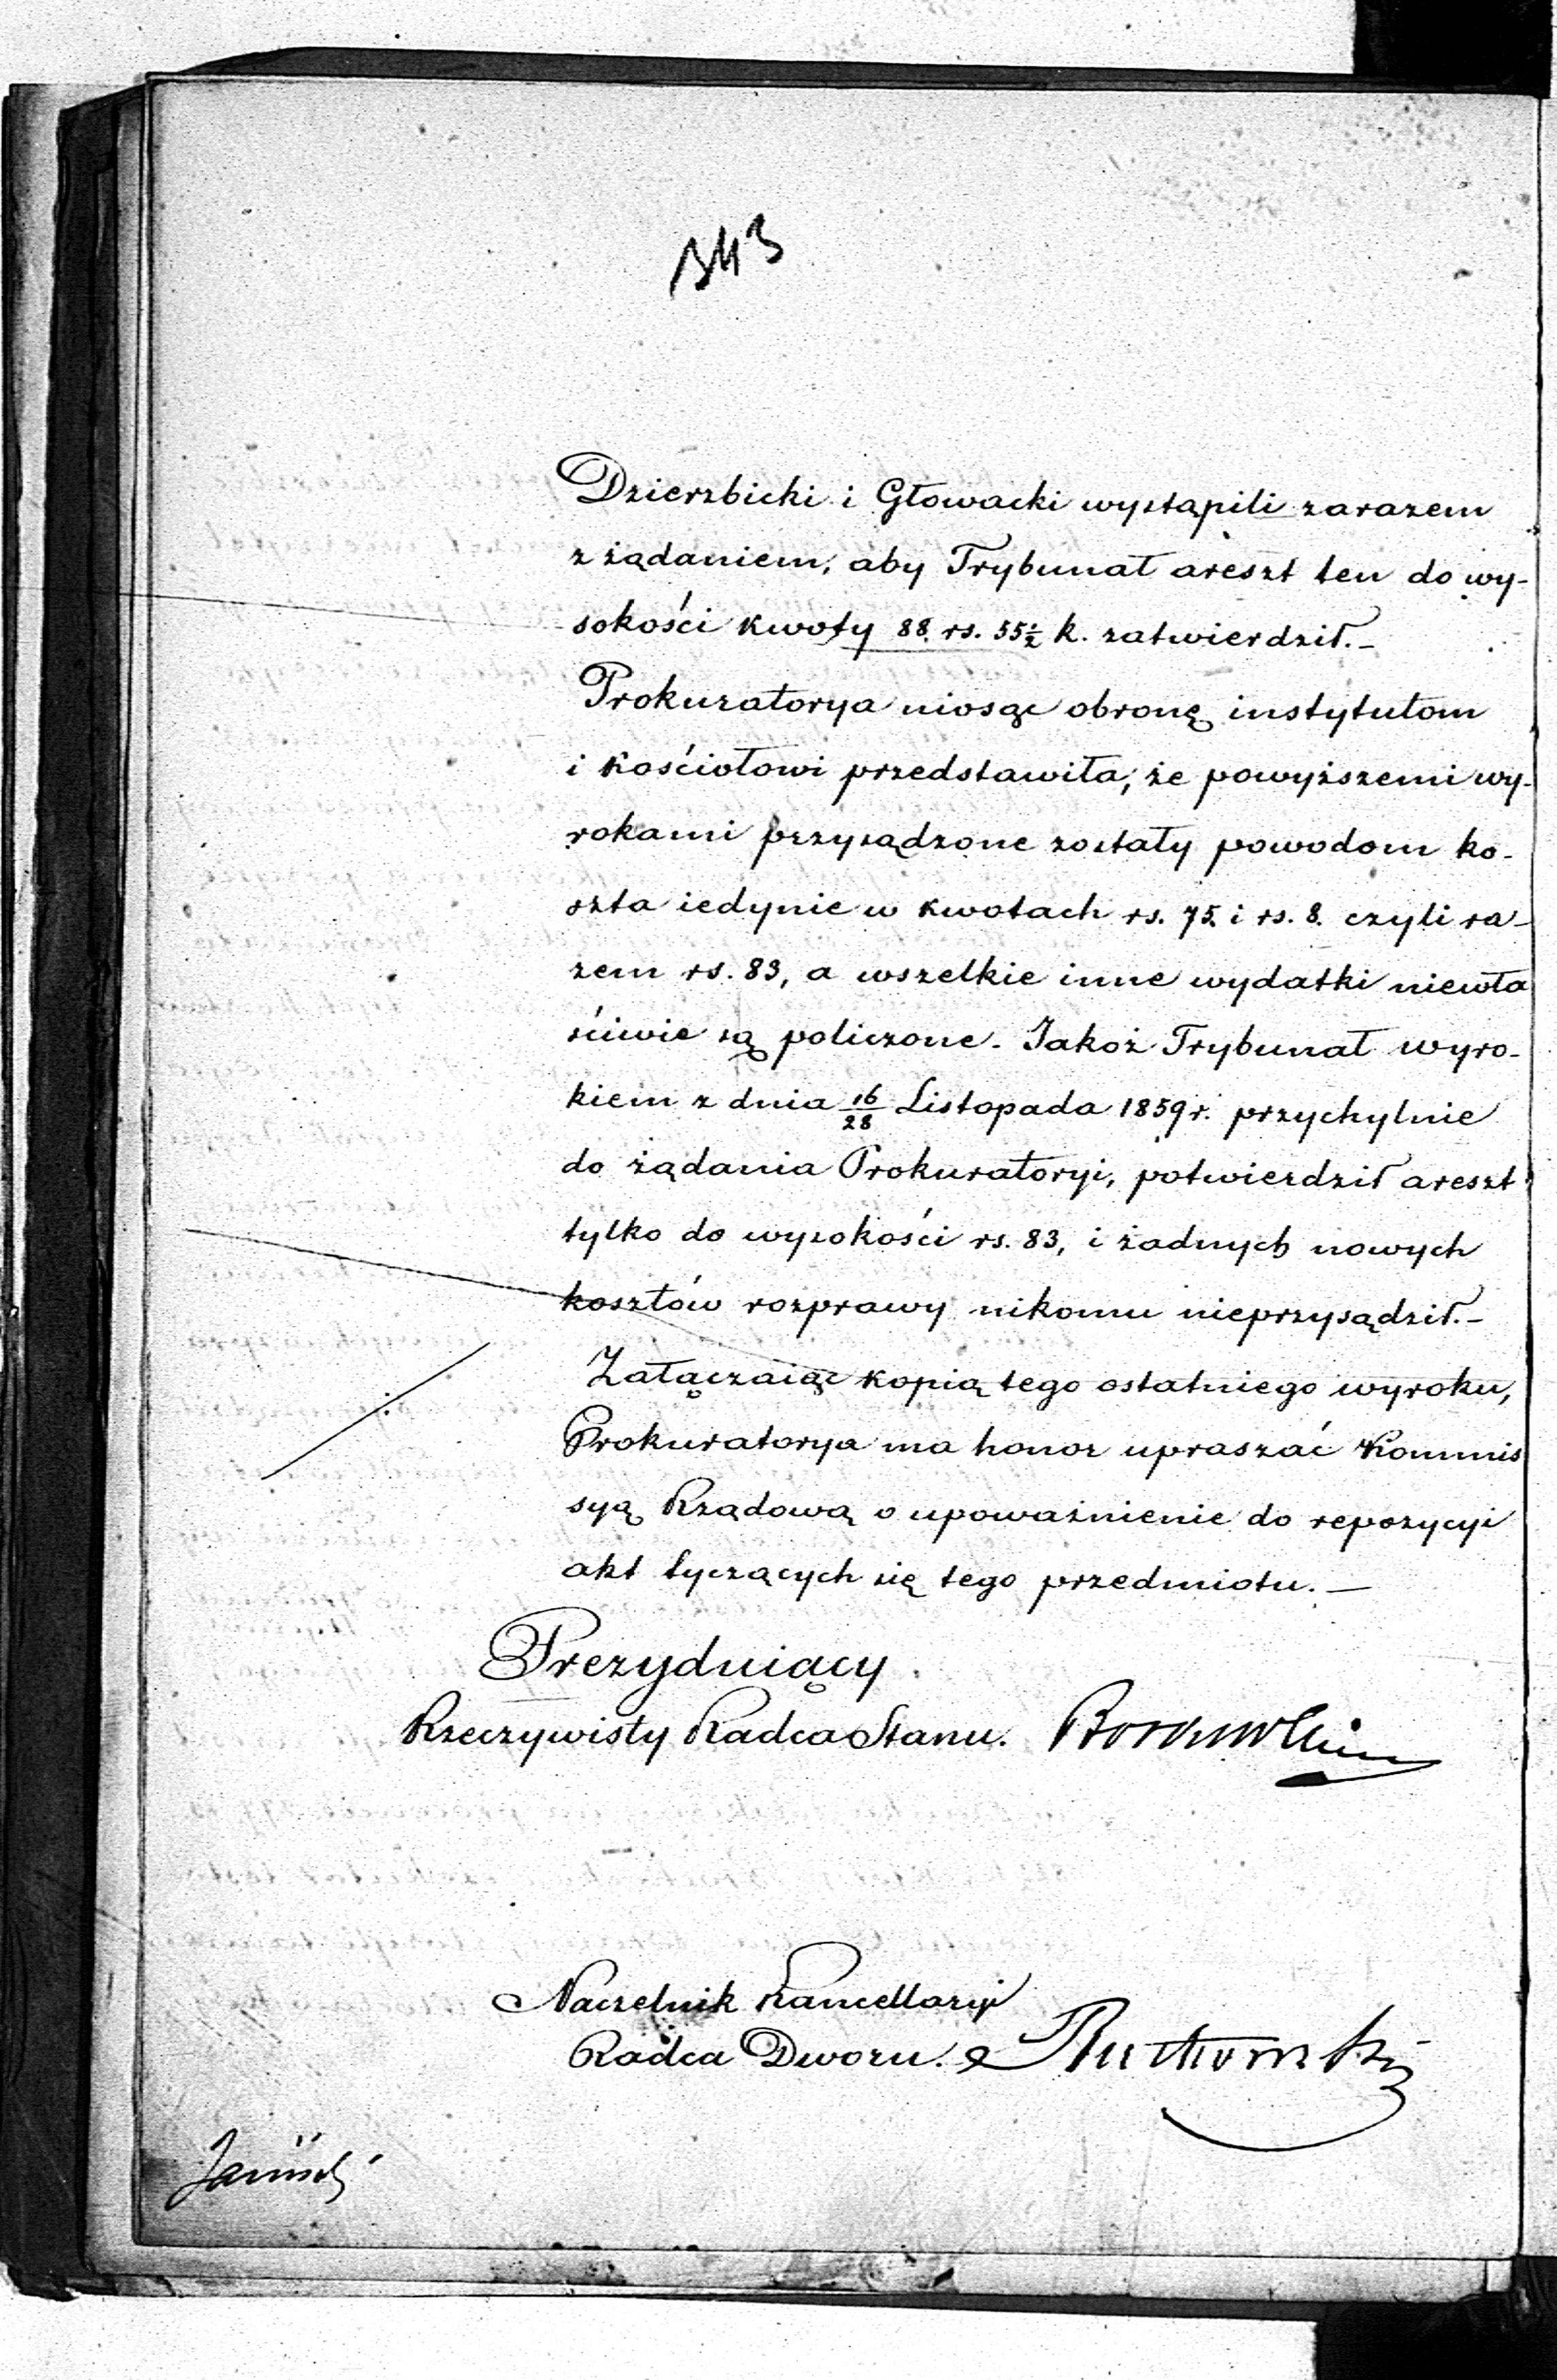 343
Dzierzbicki i Głowacki wystąpili zarazem
z żądaniem, aby Trybunał areszt ten do wy-
sokości kwoty 88. rs. 55½ k. zatwierdził.–
Prokuratorya niosąc obronę instytutom
i kościołowi przedstawiła, że powyższemi wy-
rokami przysądzone zostały powodom ko-
szta iedynie w kwotach rs. 75. i rs. 8. czyli ra-
zem rs. 83, a wszelkie inne wydatki niewła
ściwie są policzone. Jakoż Trybunał wyro-
kiem z dnia 16/28 Listopada 1859 r. przychylnie
do żądania Prokuratoryi, potwierdził areszt
tylko do wysokości rs. 83, i żadnych nowych
kosztów rozprawy nikomu nieprzysądził.–
Załączaiąc kopią tego ostatniego wyroku,
Prokuratorya ma honor upraszać Kommis
syą Rządową o upoważnienie do repozycyi
akt tyczących się tego przedmiotu.—
Prezyduiący
Rzeczywisty Radca Stanu.
Naczelnik Kancellaryi
Radca Dworu.